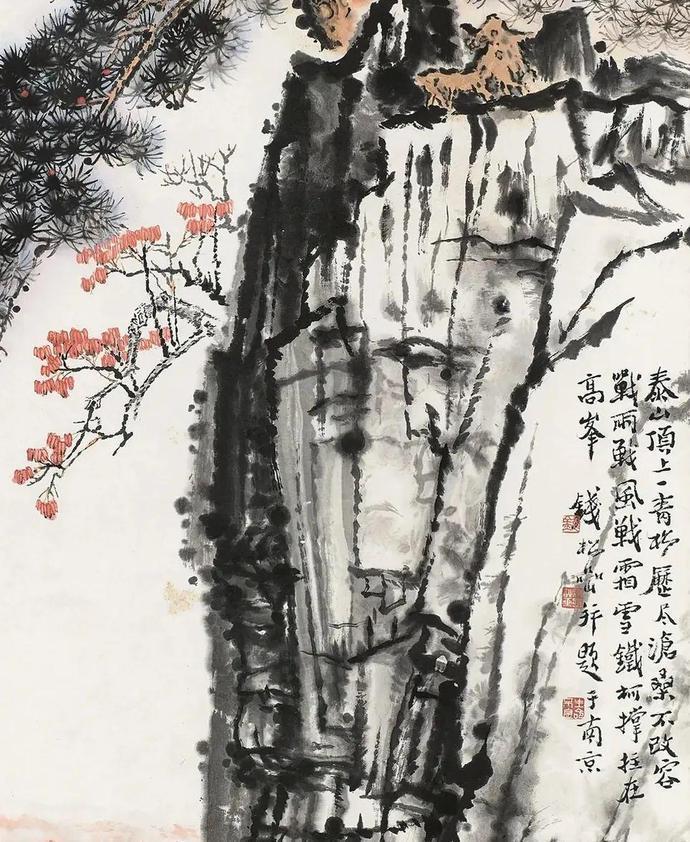 泰山頂上一青松歷盡滄桑不改容
戰雨戰風戰霜雪鐵柯撐拄在
高峯 錢松喦并題于南京